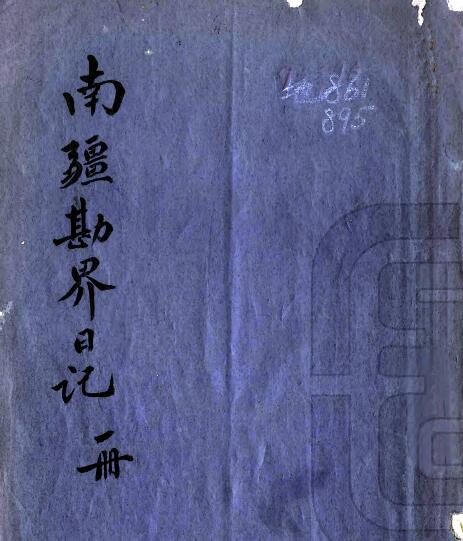 南疆勘界日记 一册
地861
895